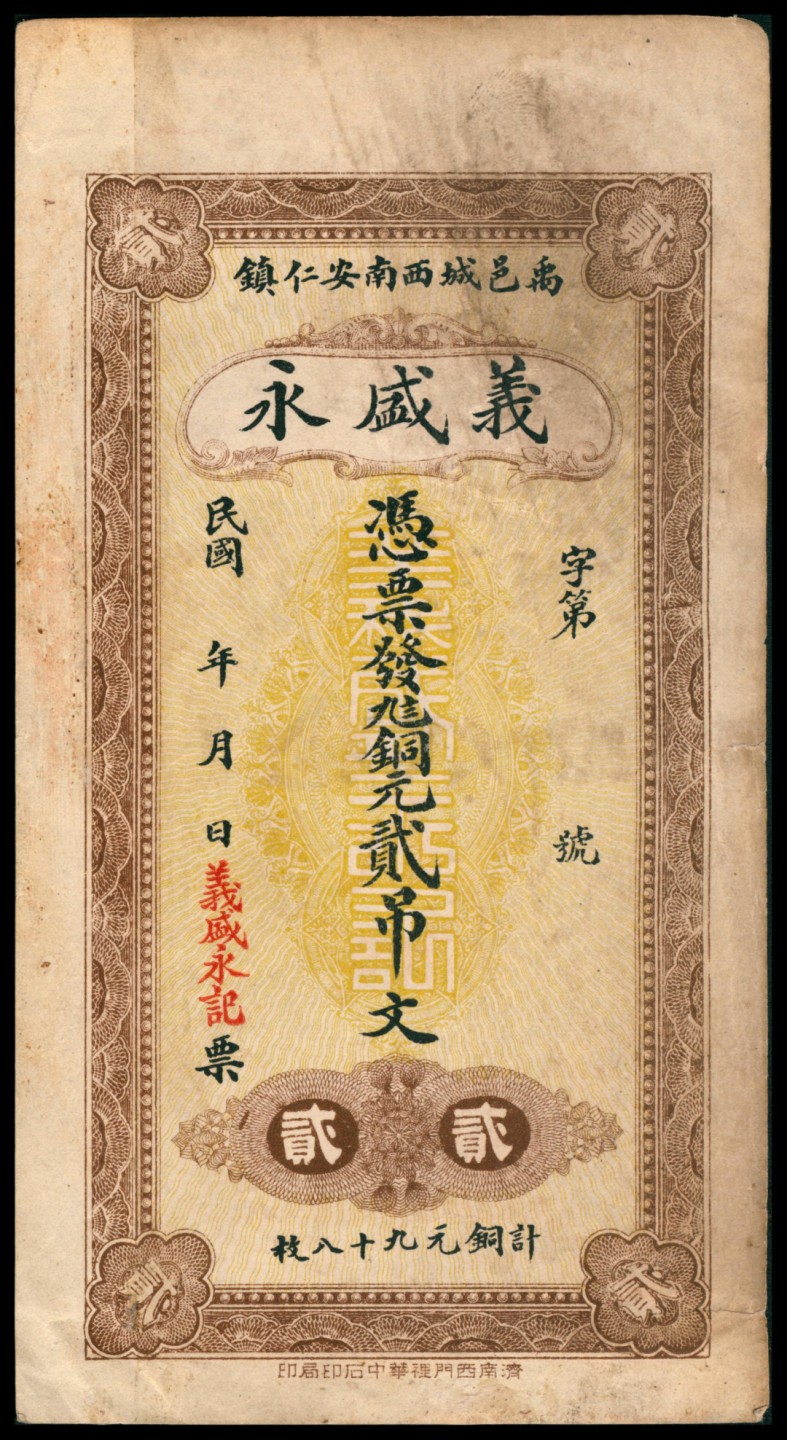 禹邑城西南安仁鎮
義盛永
字第　號
憑票發九八銅元貳吊文
民國　年　月　日義盛永記票
貳　貳
計銅元九十八枚
貳　貳
貳　貳
濟南西門裡華中石印局印